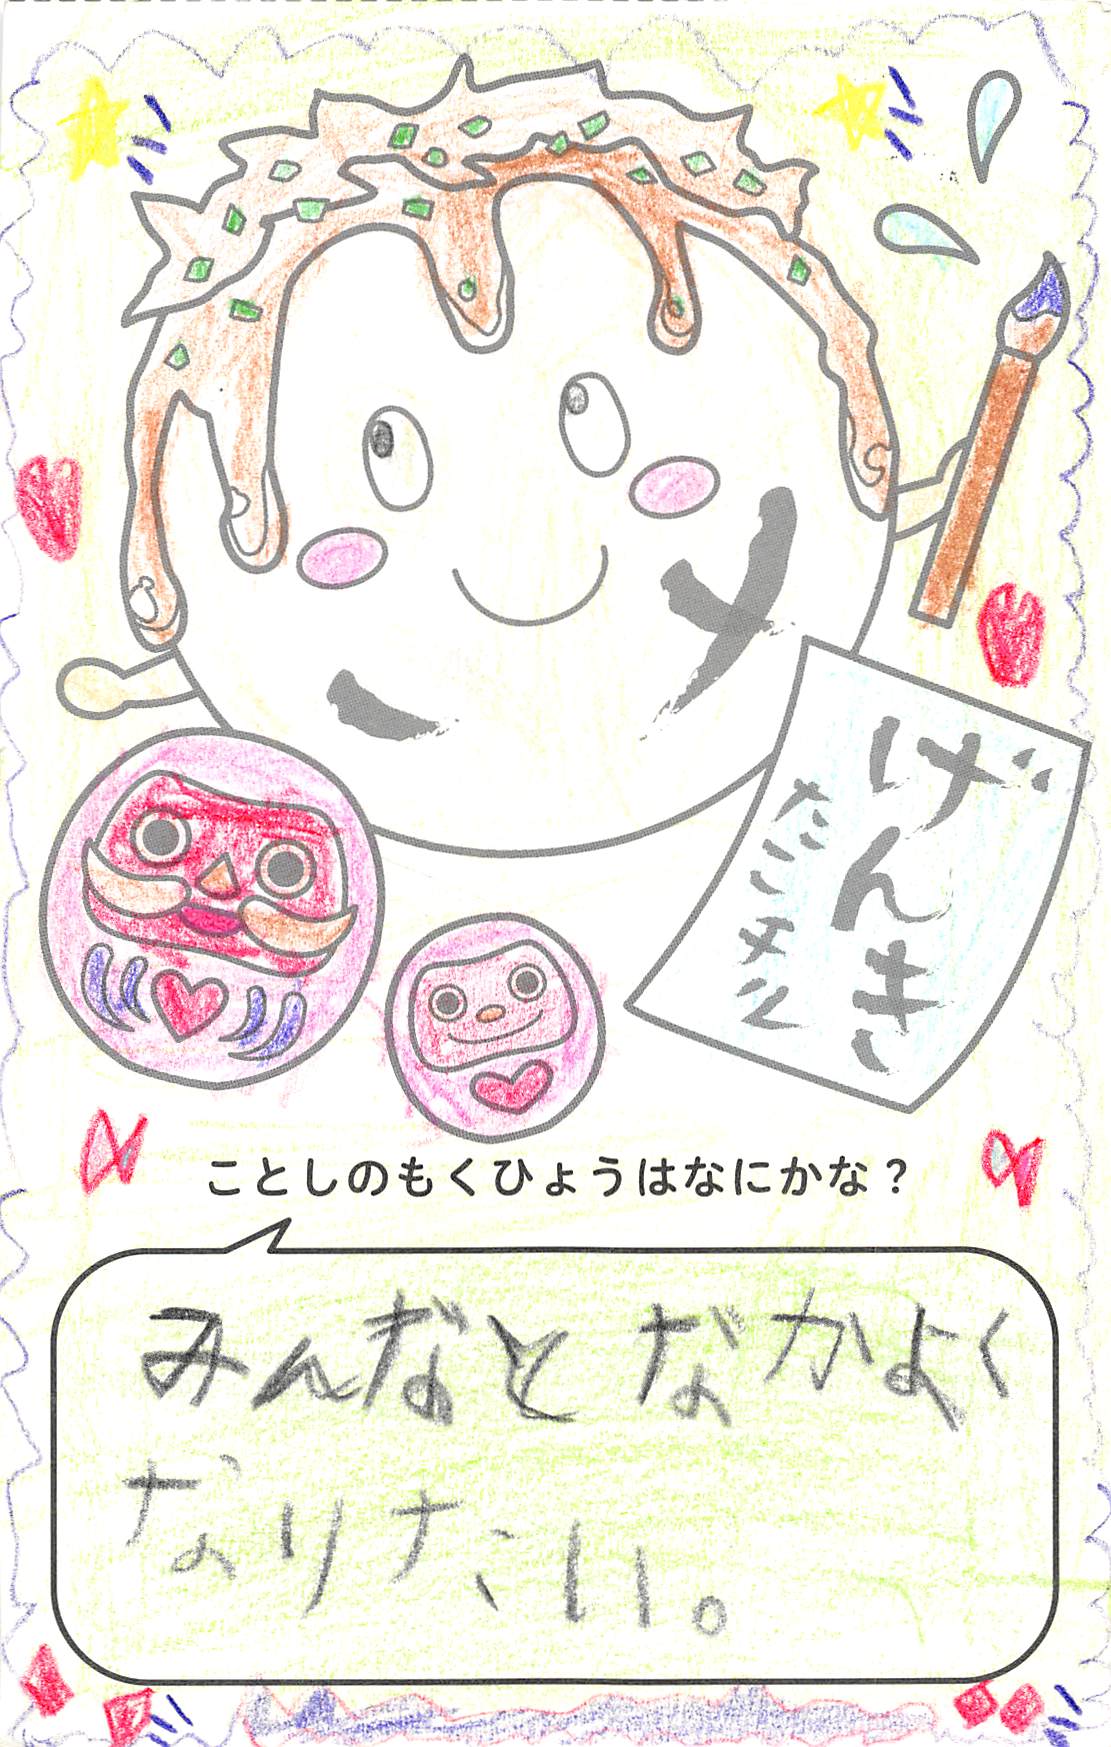 げんき
たこヤン
ことしのもくひょうはなにかな？
みんなと なかよく
なりたい。